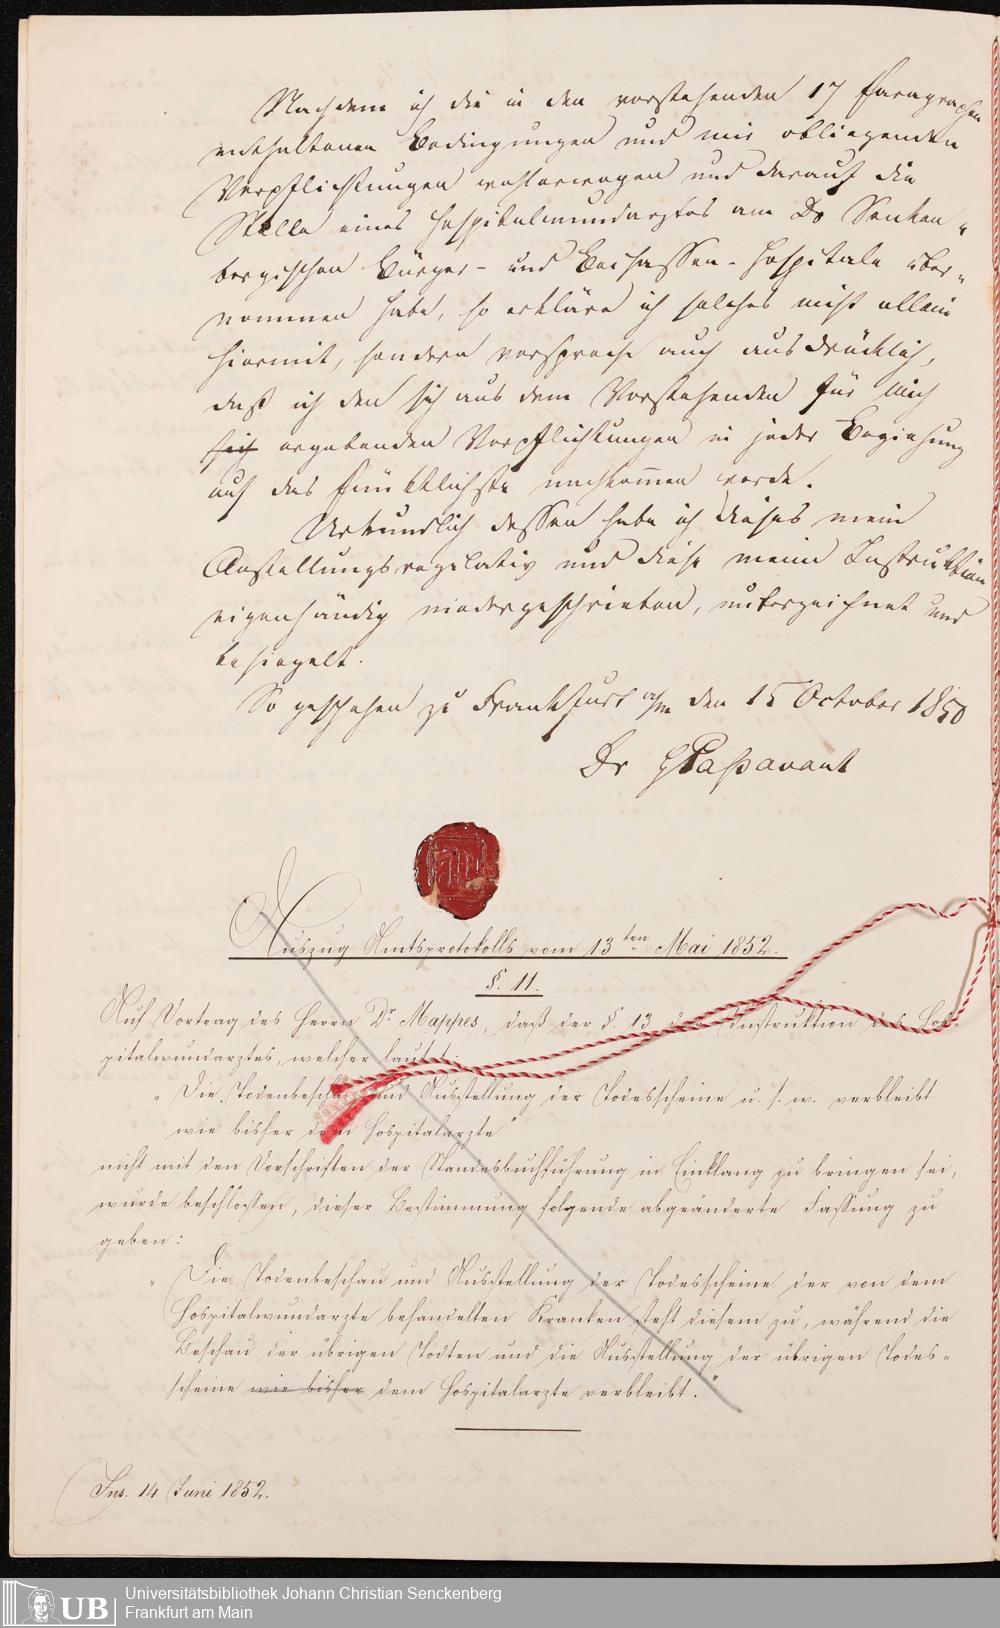 Nachdem ich die in den vorstehenden 17 Paragraphen
enthaltenen Bedingungen und mir obliegenden
Verpflichtungen wohlerwogen und darauf die
Stelle eines Hospitalwundarztes am Dr Senken„
bergischen Bürger- und Beisassen-Hospitale über„
nommen habe, so erkläre ich solches nicht allein
hiermit, sondern verspreche auch ausdrücklich,
daß ich den sich aus dem Vorstehenden für mich
sich ergebenden Verpflichtungen in jeder Beziehung
auf das Pünktlichste nachkommen werde.
Urkundlich dessen habe ich dieses mein
Anstellungsregulativ und diese meine Instruktion
eigenhändig niedergeschrieben, unterzeichnet und
besiegelt.
So geschehen zu Frankfurt a/m den 15 October 1850
Dr Passavant
Auszug Amtsprotokolls vom 13ten Mai 1852.
§. 11.
Auf Vortrag des Herrn Dr. Mappes, daß der §. 13 der Instruktion des Hos-
pitalwundarztes, welcher lautet:
„Die Todenbeschau und Ausstellung der Todesscheine u. s. w. verbleibt
wie bisher dem Hospitalarzte"
nicht mit den Vorschriften der Standesbuchführung in Einklang zu bringen sei,
wurde beschlossen, dieser Bestimmung folgende abgeänderte Fassung zu
geben:
„Die Todenbeschau und Ausstellung der Todesscheine der von dem
Hospitalwundarzte behandelten Kranken steht diesem zu, während die
Beschau der übrigen Todten und die Ausstellung der übrigen Todes-
scheine wie bisher dem Hospitalarzte verbleibt."
Ins. 14 Juni 1852.
UB
Universitätsbibliothek Johann Christian Senckenberg
Frankfurt am Main